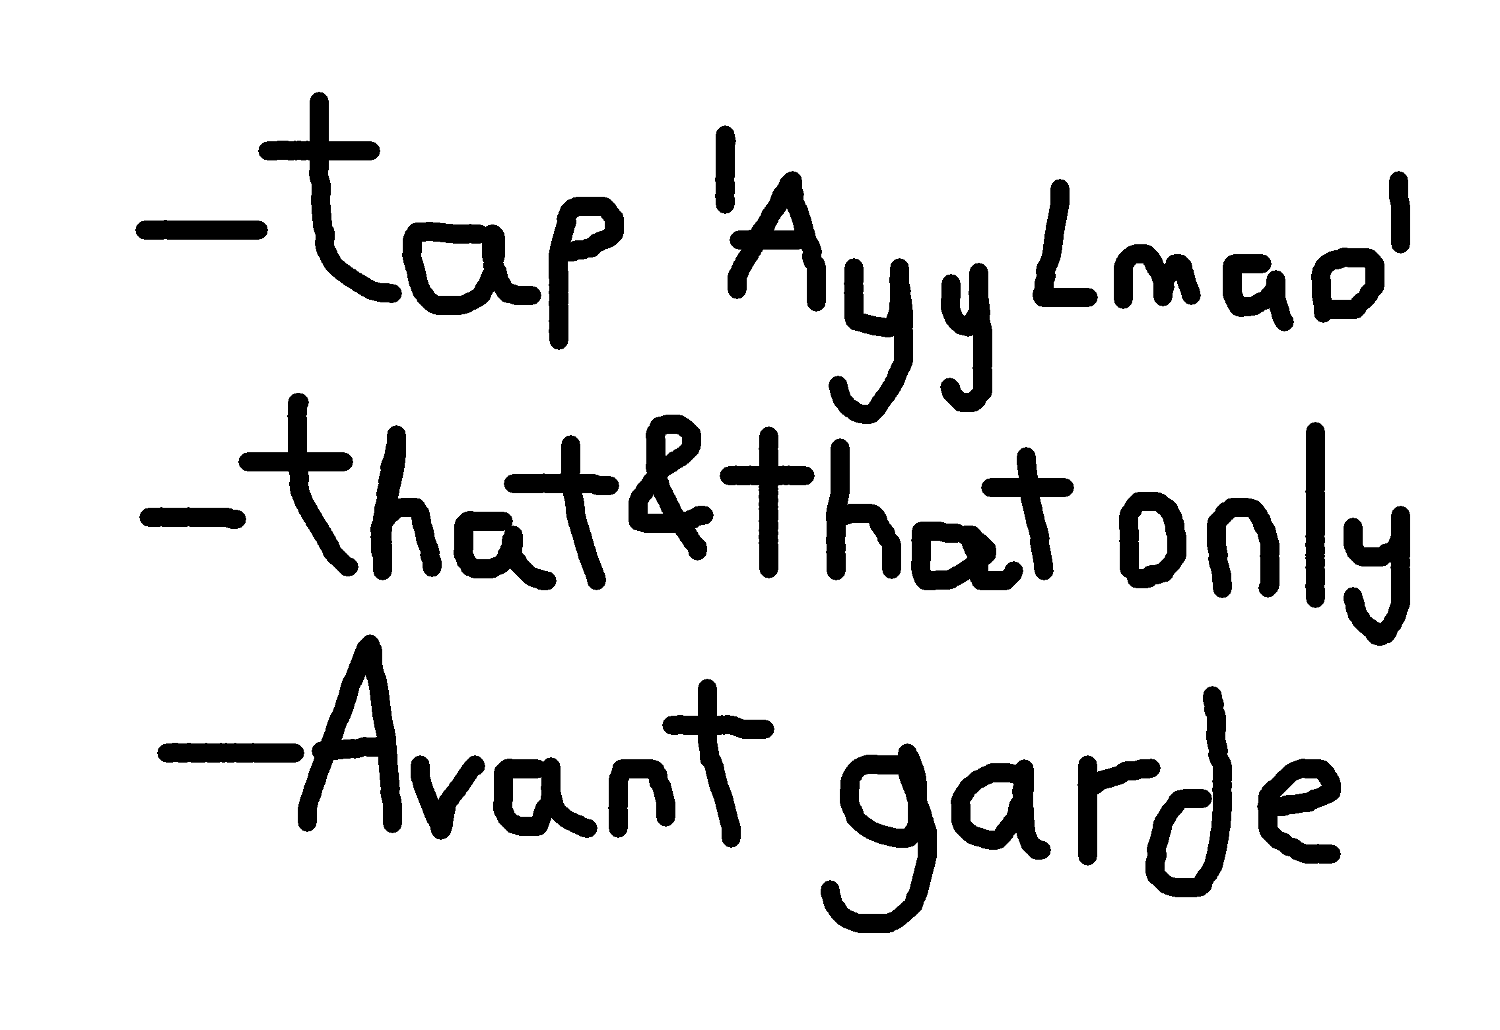 -tap 'Ayy Lmao'
-that & that only
-Avant garde